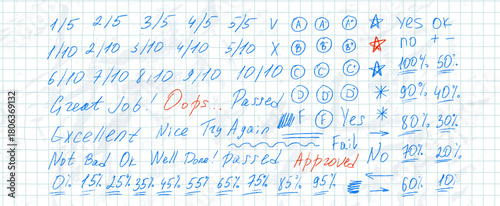 1/5 2/5 3/5 4/5 5/5 V A A A+ yes ok
1/10 2/10 3/10 4/10 5/10 X B B B+ no + -
6/10 7/10 8/10 9/10 10/10 C C C+ 100% 50%
Great Job! Oops... Passed D D D+ * 90% 40%
Excellent Nice Try Again F F Yes 80% 30%
Not Bad Ok Well Done! passed Approved Fail No 70% 20%
0% 15% 25% 35% 45% 55% 65% 75% 85% 95% 60% 10%
Adobe Stock | #1806369132